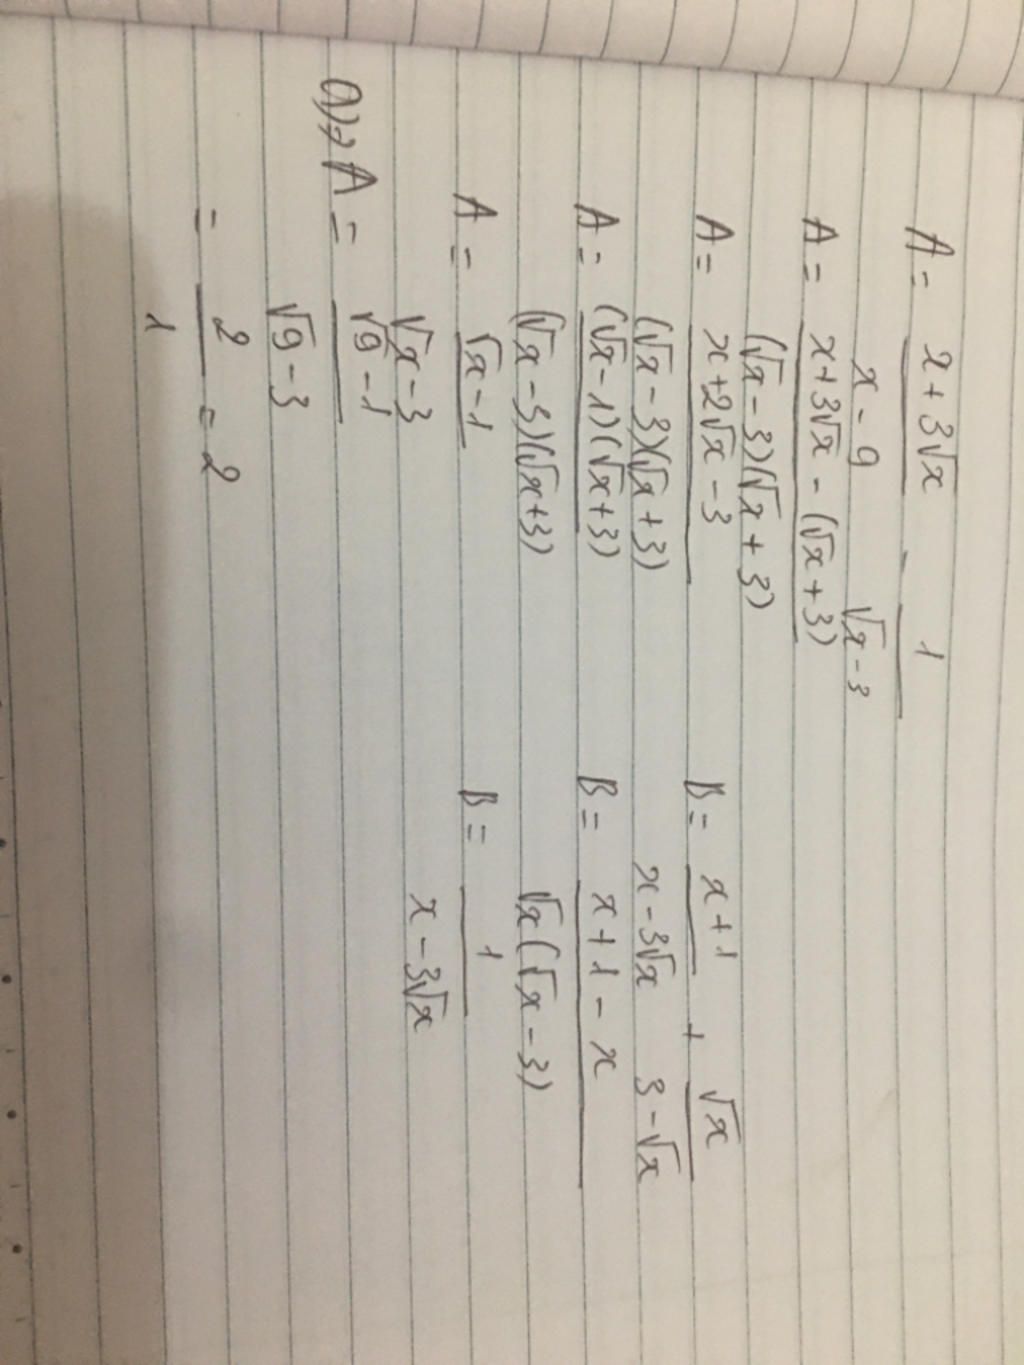 A = x + 3√x / x - 9 - 1 / √x - 3
A = x + 3√x - (√x + 3) / (√x - 3)(√x + 3)
A = x + 2√x - 3 / (√x - 3)(√x + 3)
A = (√x - 1)(√x + 3) / (√x - 3)(√x + 3)
A = √x - 1 / √x - 3
a) → A = √9 - 1 / √9 - 3
= 2 / 1 = 2
B = x + 1 / x - 3√x + √x / 3 - √x
B = x + 1 - x / √x(√x - 3)
B = 1 / x - 3√x